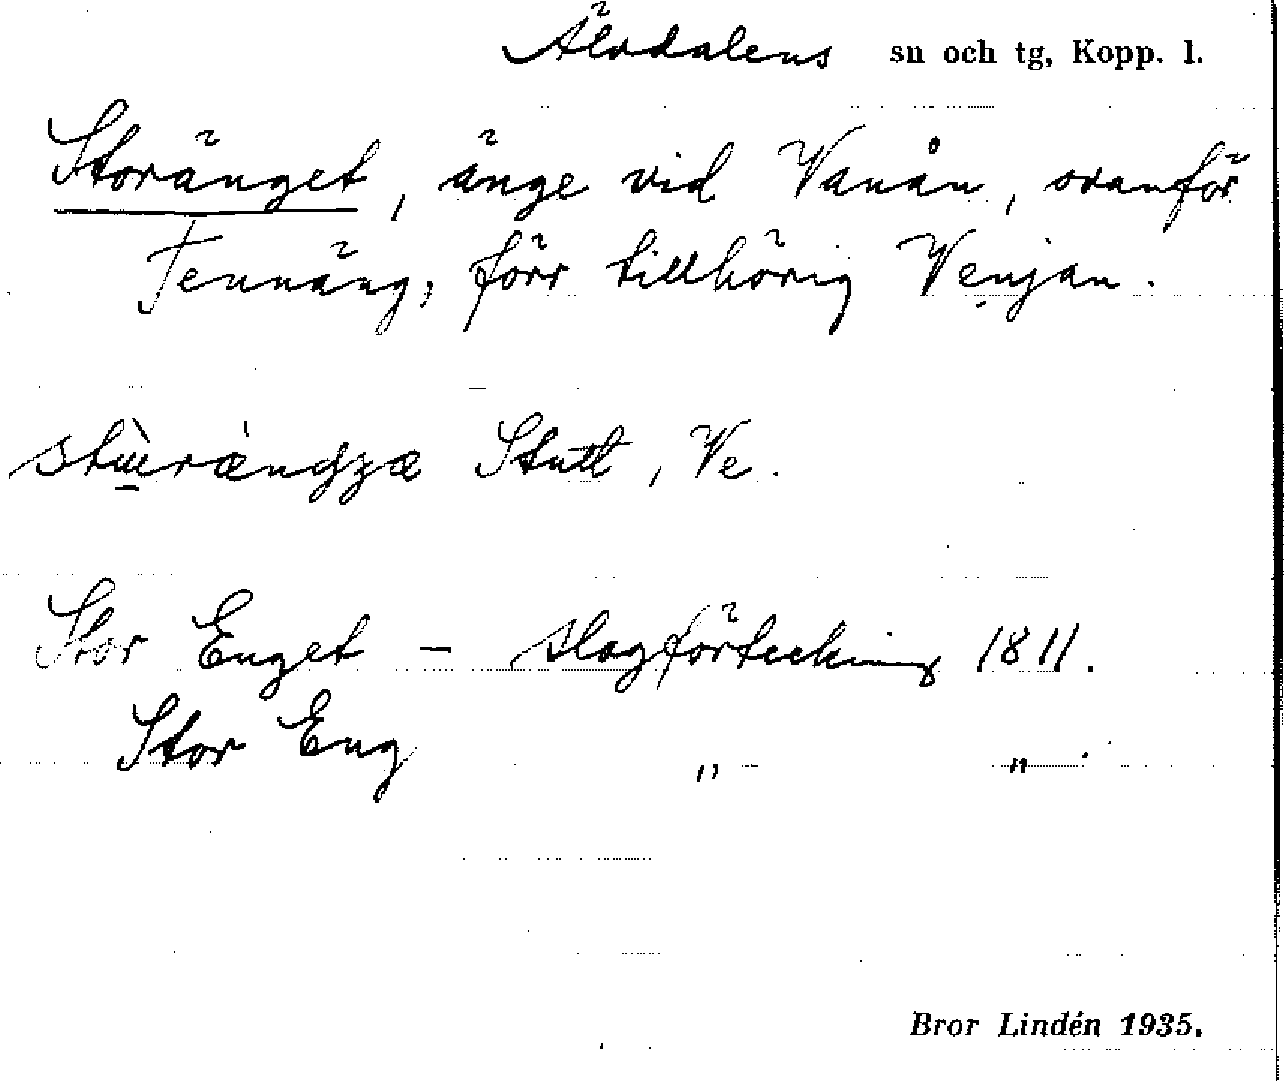 Älvdalens sn och tg, Kopp. l.
Storänget, änge vid Vanån, ovanför
Tennäng, förr tillhörig Venjan.
Stutt, Ve.
Stor Enget – slagförteckning 1811.
Stor Eng " " .
Bror Lindén 1935.